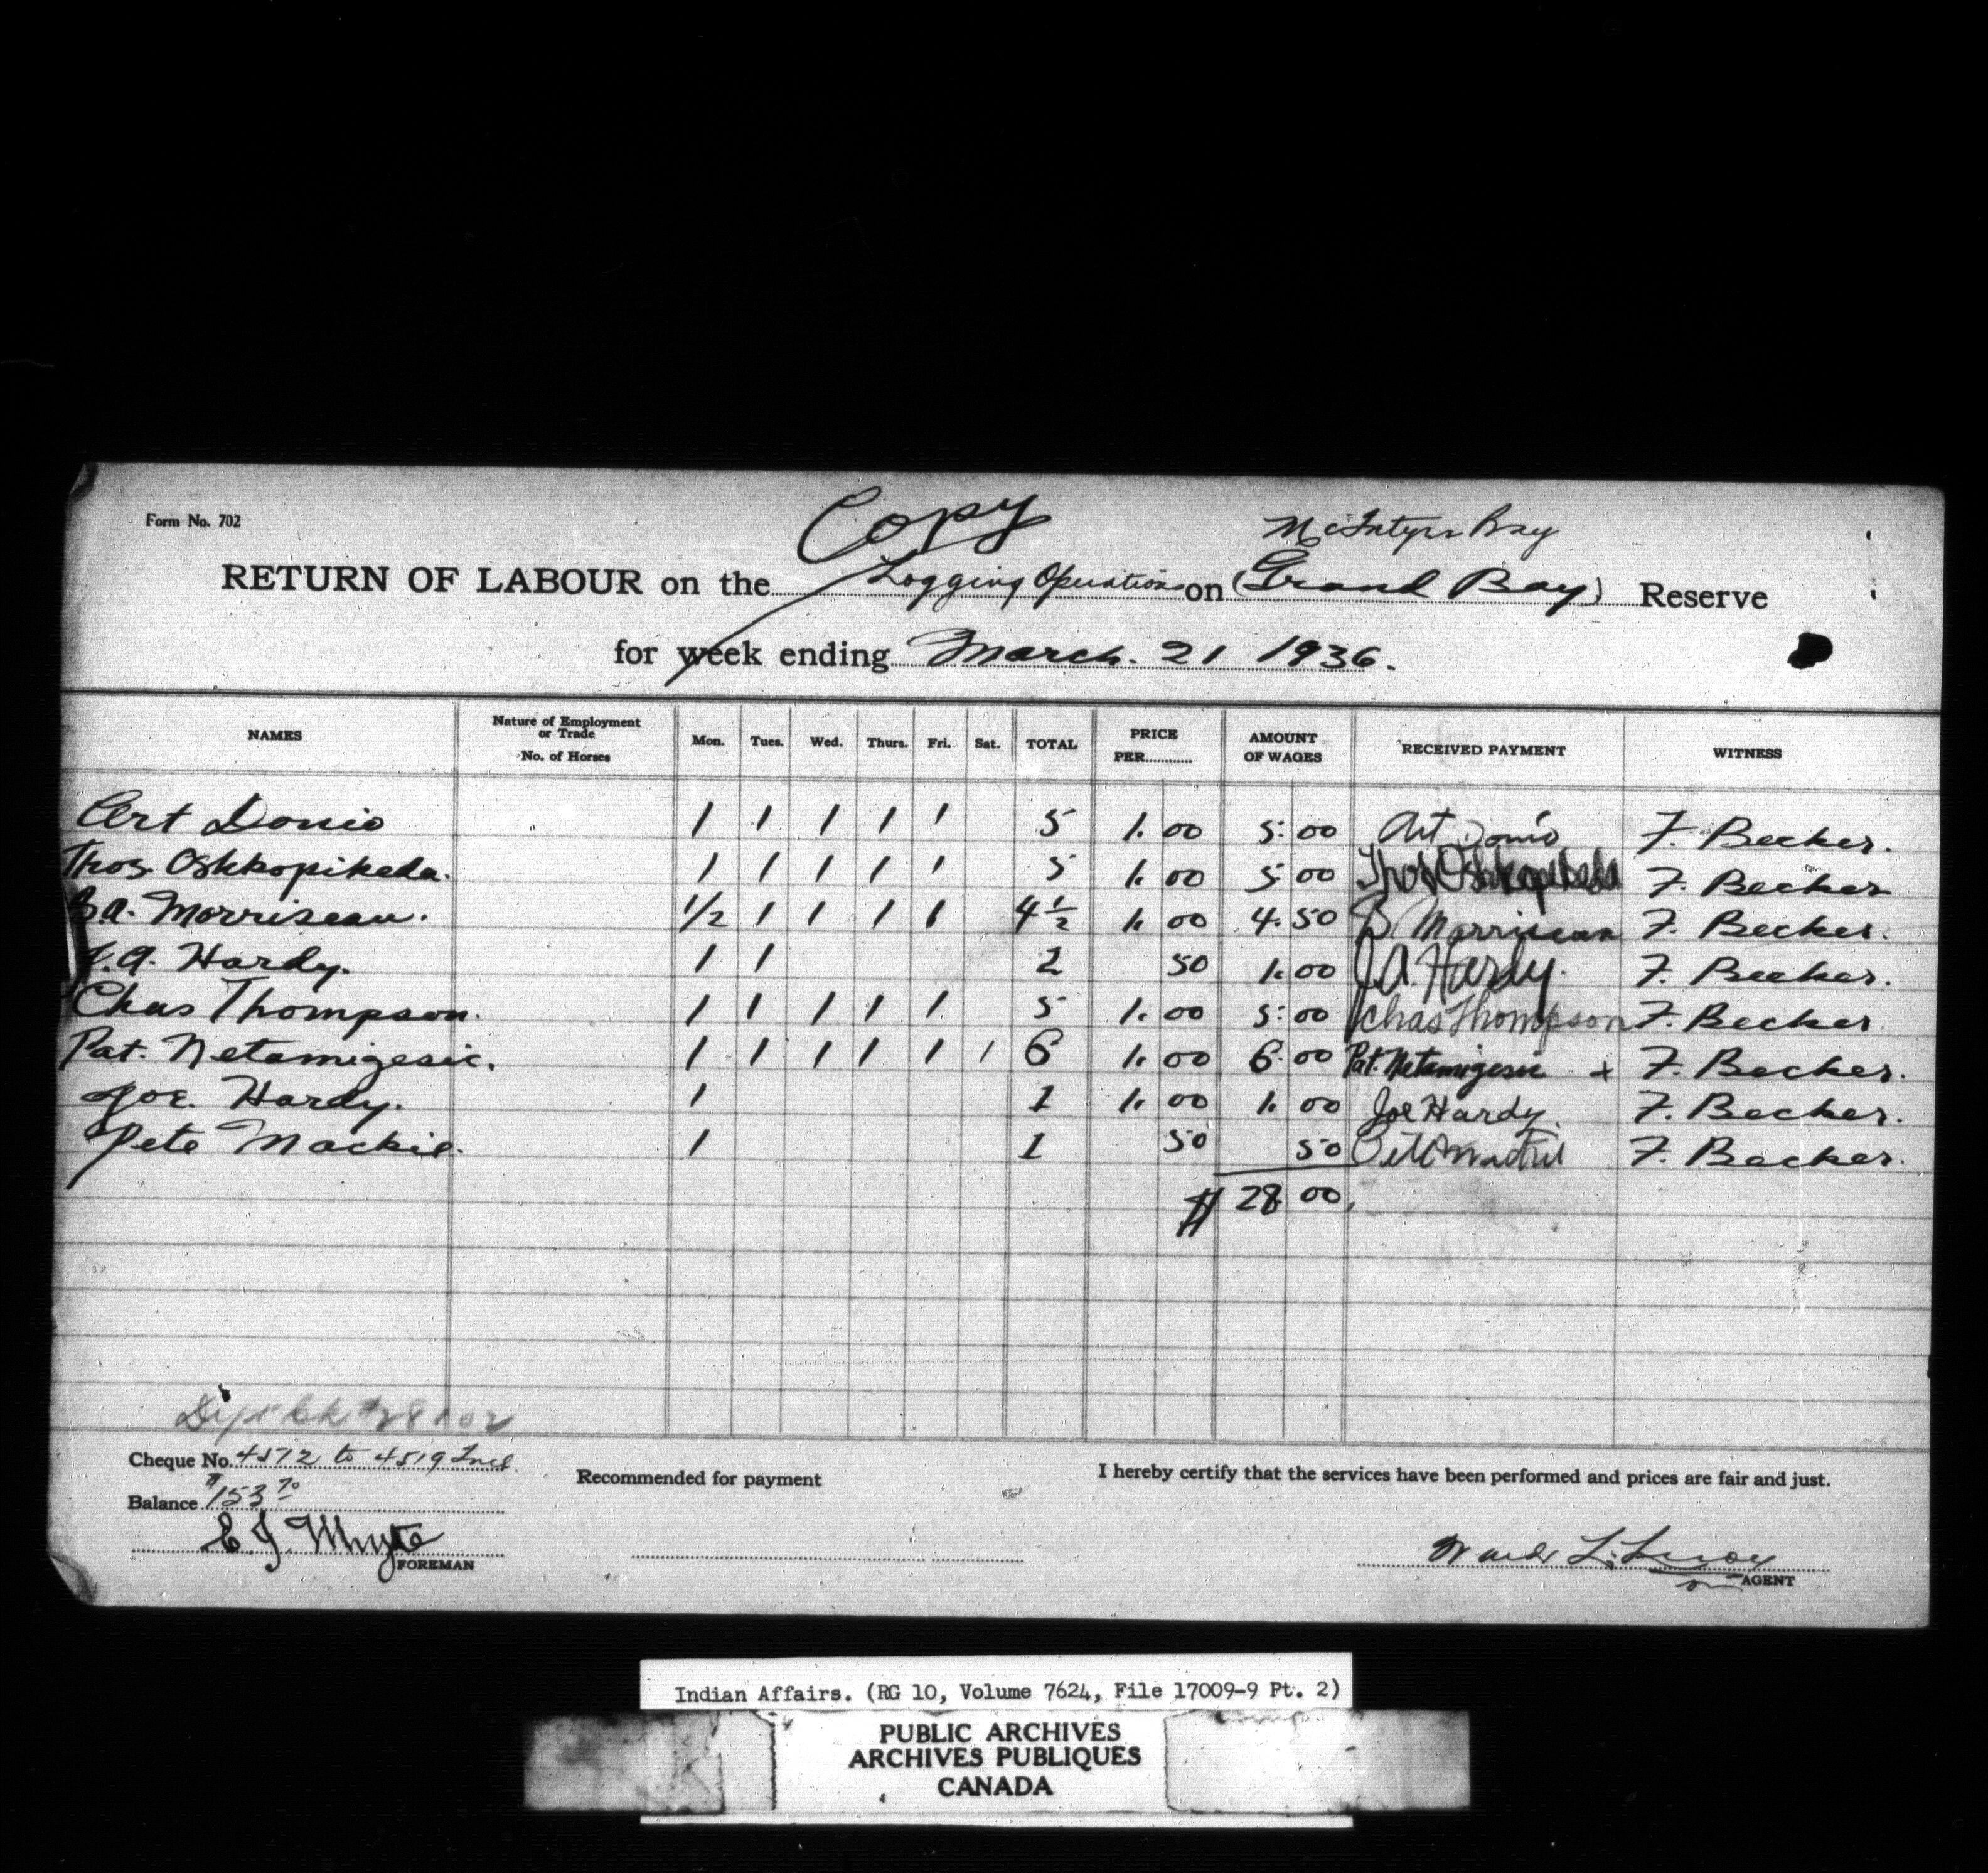 Form No. 702
Copy
McIntyre Bay
RETURN OF LABOUR on the Logging Operations on (Grand Bay) Reserve
for week ending March. 21 1936.
NAMES Nature of Employment or Trade No. of Horses Mon. Tues. Wed. Thurs. Fri. Sat. TOTAL PRICE PER AMOUNT OF WAGES RECEIVED PAYMENT WITNESS
Art Donio 1 1 1 1 1 5 1. 00 5. 00 Art Donio F. Becker.
Thos. Oshkopikeda. 1 1 1 1 1 5 1. 00 5 00 Thos Oshkopikeda F. Becker
B.A. Morriseau. 1/2 1 1 1 1 4 1/2 1. 00 4. 50 B. Morriseau F. Becker.
J.A. Hardy. 1 1 2 50 1. 00 J.A. Hardy. F. Becker.
Chas Thompson. 1 1 1 1 1 5 1. 00 5. 00 Chas Thompson F. Becker.
Pat. Netamigesic. 1 1 1 1 1 1 6 1. 00 6. 00 Pat. Netamigesic x F. Becker.
Joe. Hardy. 1 1 1. 00 1. 00 Joe Hardy. F. Becker.
Pete Mackie. 1 1 50 50 F. Becker.
$ 28 00.
Cheque No. 4512 to 4519 Incl.
Recommended for payment
I hereby certify that the services have been performed and prices are fair and just.
Balance $153 70
FOREMAN
AGENT
Indian Affairs. (RG 10, Volume 7624, File 17009-9 Pt. 2)
PUBLIC ARCHIVES
ARCHIVES PUBLIQUES
CANADA